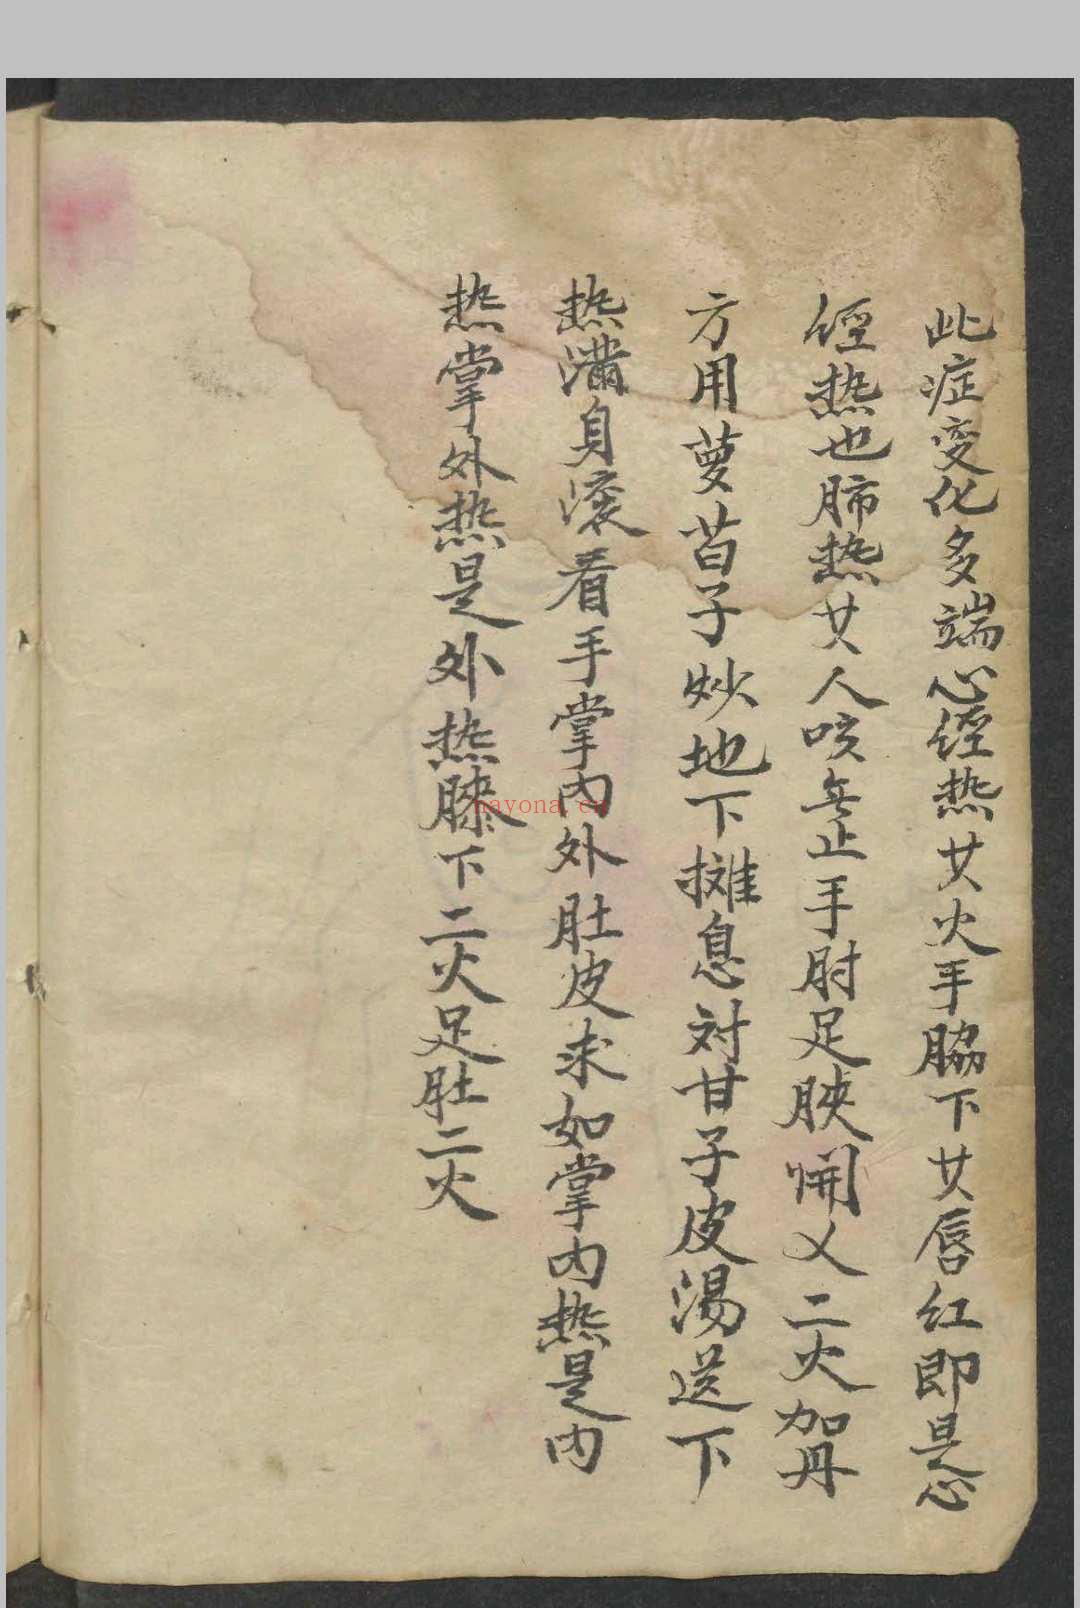 此症变化多端心経热女火手脇下女唇红即是心
経热也肺热女人咳無止手肘足腴開乂二火加丹
方用萝苩子炒地下摊息対甘子皮湯送下
热满身滚看手掌内外肚皮求如掌内热是内
热掌外热是外热膝下二火足肚二火
nayona.cn